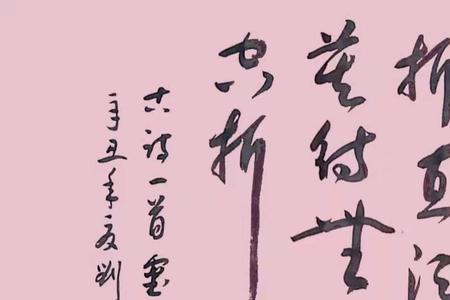 折直须
莫待無
空折
古诗一首
辛丑年夏刘